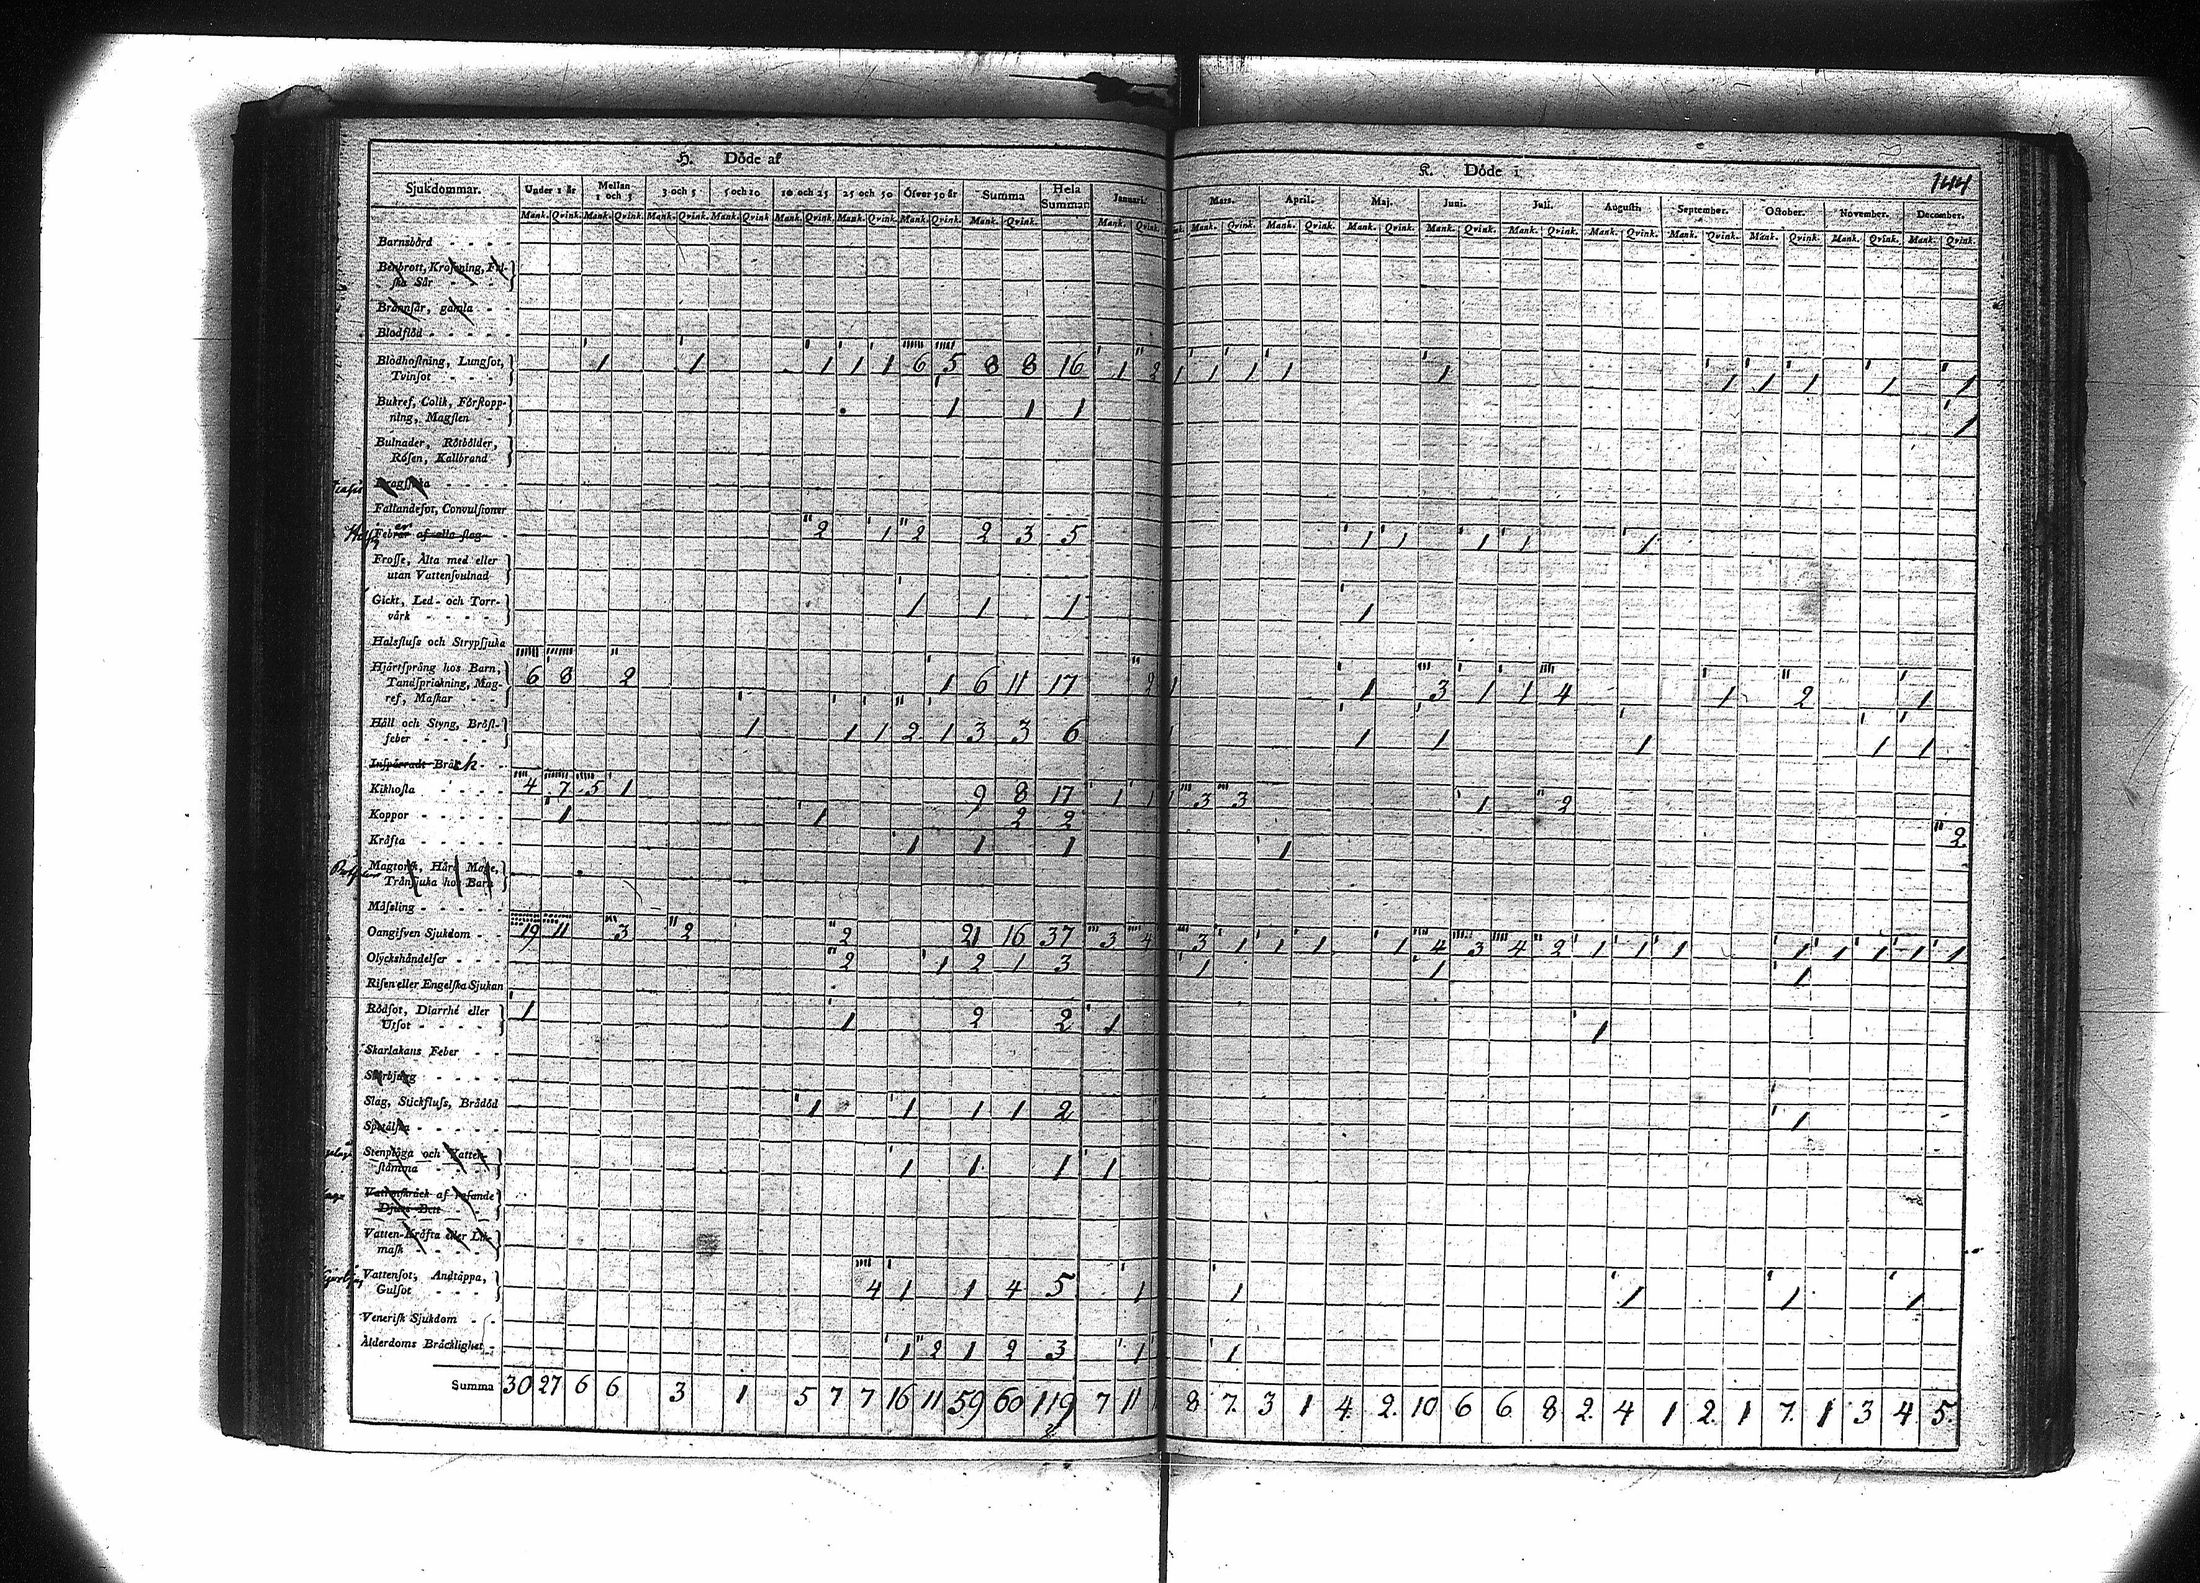 H. Döde af
K. Döde i
144
Sjukdommar. Under 1 år Mellan 1 och 3 3 och 5 5 och 10 10 och 25 25 och 50 Öfver 50 år Summa Hela Summan Januari. Mars. April. Maj. Junі. Juli. Augusti. September. October. November. December.
Mank. Qvink. Mank. Qvink. Mank. Qvink. Mank. Qvink. Mank. Qvink. Mank. Qvink. Mank. Qvink. Mank. Qvink. Mank. Qvink. Mank. Qvink. Mank. Qvink. Mank. Qvink. Mank. Qvink. Mank. Qvink. Mank. Qvink. Mank. Qvink. Mank. Qvink. Mank. Qvink. Mank. Qvink.
Barnsbörd
Benbrott, Krossning, Fri-
ska Sår
Brännsår, gamla
Blodflöd
Blodhostning, Lungsot, 1 1 1 1 1 6 5 8 8 16 1 2 1 1 1 1 1 1 1 1 1 1
Tvinsot
Bukref, Colik, Förstopp- 1 1 1 1
ning, Magsten
Bulnader, Rötbölder,
Rosen, Kallbrand
Dragsjuka
Fallandesot, Convulsioner
Febrar af alla slag 2 1 2 2 3 5 1 1 1 1 1
Frosse, Älta med eller
utan Vattensvulnad
Gickt, Led- och Torr- 1 1 1 1
värk
Halsfluss och Strypsjuka
Hjärtsprång hos Barn, 6 8 2 1 6 11 17 2 1 1 3 1 1 4 1 2 1
Tandsprickning, Mag-
ref, Maskar
Håll och Styng, Bröst- 1 1 1 2 1 3 3 6 1 1 1 1 1
feber
Inspärradt Bråck
Kikhosta 4 7 5 1 9 8 17 1 1 1 3 3 1 2
Koppor 1 1 2 2 2
Kräfta 1 1 1 1
Magtorsk, Hård Mage,
Trånsjuka hos Barn
Måsling
Oangifven Sjukdom 19 11 3 2 2 21 16 37 3 4 3 1 1 1 1 4 3 4 2 1 1 1 1 1 1 1 1
Olyckshändelser 2 1 2 1 3 1 1 1
Risen eller Engelska Sjukan
Rödsot, Diarrhé eller 1 1 2 2 1 1
Utsot
Skarlakans Feber
Skörbjugg
Slag, Stickfluss, Brådöd 1 1 1 1 2 1
Spetälska
Stenplåga och Vatten- 1 1 1 1
stämma
Vattuskräck af rasande
Djurs Bett
Vatten-Kräfta eller Lik-
mask
Vattensot, Andtäppa, 4 1 1 4 5 1 1 1 1 1
Gulsot
Venerisk Sjukdom
Ålderdoms Bräcklighet 1 2 1 2 3 1 1
Summa 30 27 6 6 3 1 5 7 7 16 11 59 60 119 7 11 8 7 3 1 4 2 10 6 6 8 2 4 1 2 1 7 1 3 4 5